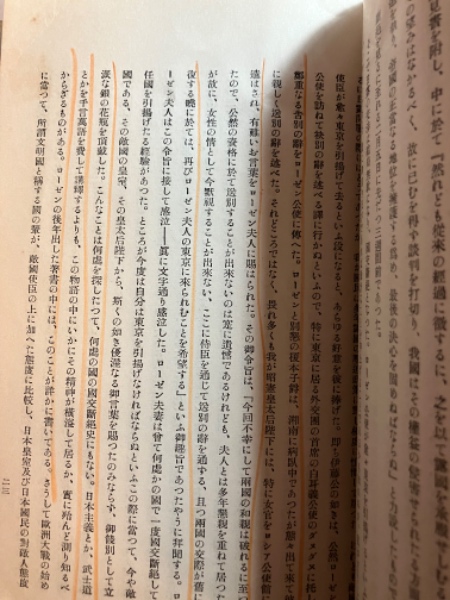 見書を附し、中に於て『然れども従来の經過に徴するに、之を以て露國を
の望みはなかるべく
故に已むを得ず談判を打切り、我國はその
使臣が愈々東京を引揚げて去るといふ段になると、あらゆる好意を彼に捧げた。即ち伊藤公の如きは、公然ローゼン
公使を訪ねて訣別の辭を述べる譯に行かぬといふので、特に東京に居る外交團の首席の白耳義公使のダヌタンに托し
鄭重なる告別の辭をローゼン公使に傳へた。ローゼンと別懇の榎本子爵は、湘南に病臥中であつたが態々出て來て
に親しく送別の辭を述べた。それどころではなく、畏れ多くも我が昭憲皇太后陛下には、特に女官をロシア公使館
遣はされ、有難いお言葉をローゼン夫人に賜はられた。その御令旨は、『今回不幸にして兩國の和親は破れるに至つ
たので、公然の資格に於て送別することが出來ないのは寔に遺憾であるけれども、夫人とは多年懇親を重ねて居つた
が故に、女性の情として今默視することが出來ない、ここに侍臣を通じて送別の辭を通ずる、且つ兩國の交際が舊に
復する曉に於ては、再びローゼン夫人の東京に來られむことを希望する』といふ御趣旨であつたやうに拜聞する。ロ
ーゼン夫人はこの令旨に接して感泣――眞に文字通り感泣した。ローゼン夫妻は曾て何處かの國で一度國交斷絶して
任國を引揚げたる經驗があつた。ところが今度は自分は東京を引揚げなければならぬといふこの際に當つて、今や敵
國である、その敵國の皇室、その皇太后陛下から、斯くの如き優渥なる御言葉を賜つたのみならず、御餞別として立
派な銀の花瓶を頂戴した。こんなことは何處を探したつて、何處の國の國交斷絶史にもない。日本主義とか、武士道
とかを千言萬語を費して講釋するよりも、この物語の中にいかにその精神が横溢して居るか、寔に殆んど測り知るべ
からざるものがある。ローゼンの後年出した著書の中には、このことが詳かに書いてある。さうして歐洲大戰の始め
に當つて、所謂文明國と稱する國の輩が、敵國使臣の上に加へた態度に比較し、日本皇室及び日本國民の對敵人態度
二三